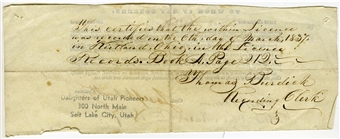 This certifies that the within License
was recorded on the 6th day of March, 1837,
in Kirtland, Ohio, in the License
Records, Book A, Page 212.
Thomas Burdick
Recording Clerk
Daughters of Utah Pioneers
300 North Main
Salt Lake City, Utah